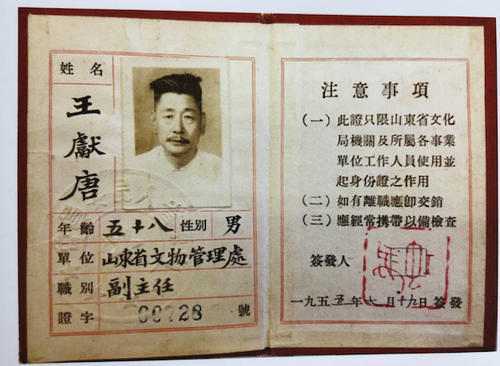 姓名
王獻唐
年齡 五十八 性別 男
單位 山東省文物管理處
職別 副主任
證字 00728 號
注意事項
(一) 此證只限山東省文化
局機關及所屬各事業
單位工作人員使用並
起身份證之作用
(二) 如有離職應卽交銷
(三) 應經常攜帶以備檢查
簽發人
一九五五年 月十九日 簽發